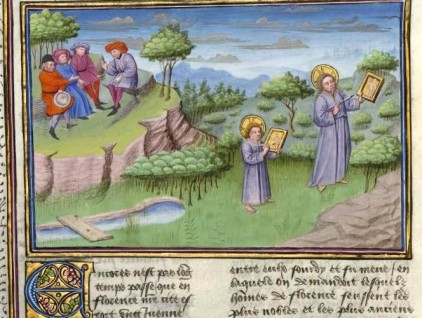 Encores nest pas log
temps passe que en
florence nre cite es
toit ung iuenne
entre eulx sourdy et fu mene en
laquele on demandoit lesquelz
homes de florence feussent les
plus nobles et les plus anciens